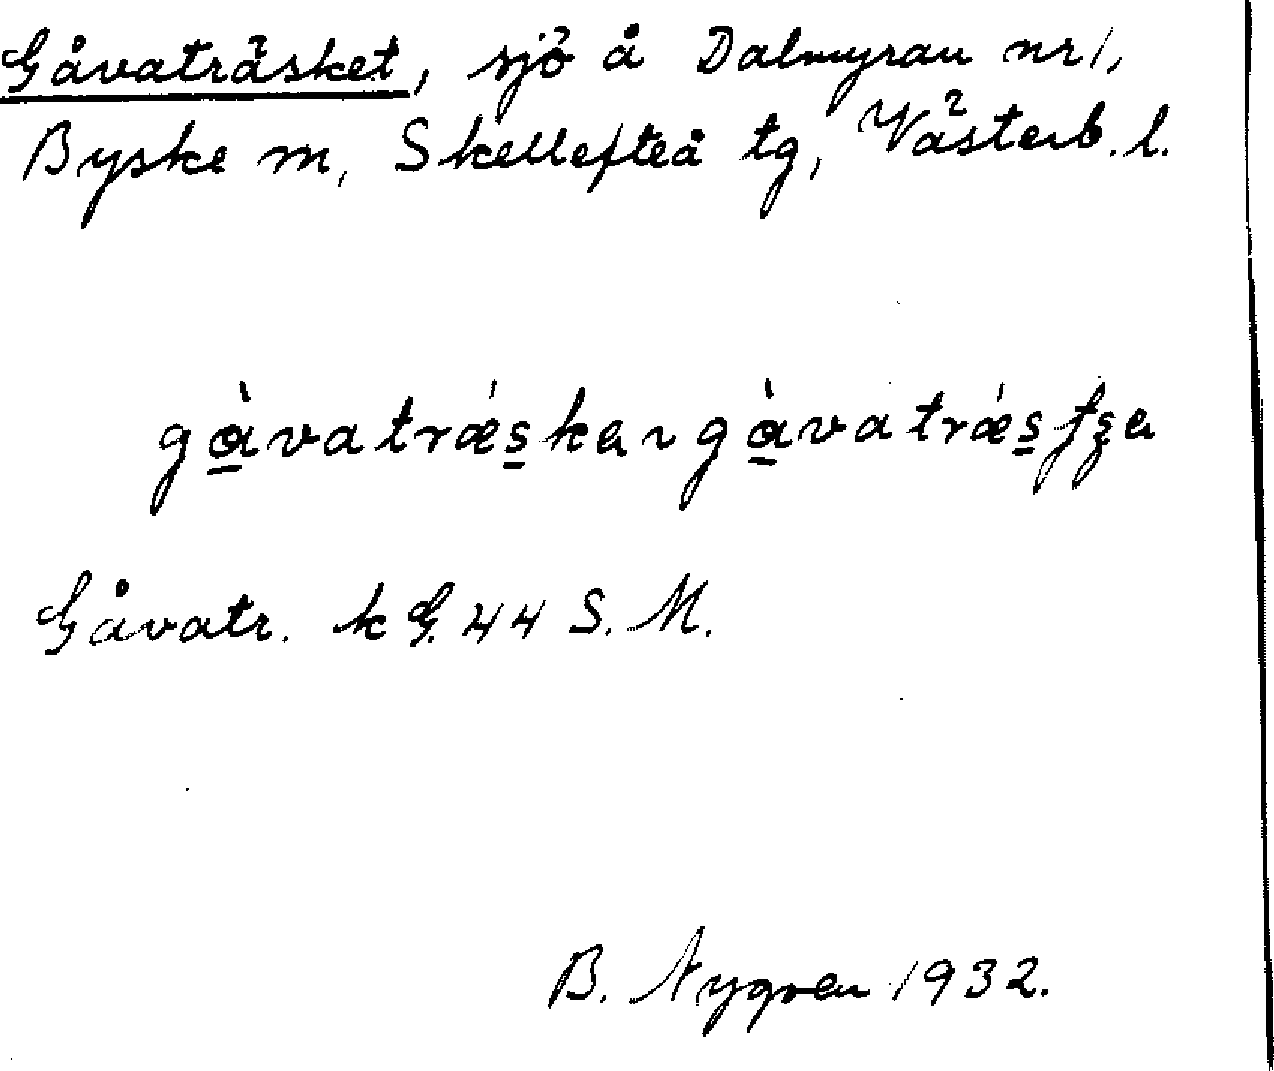 Gåvaträsket, sjö å Dalmyran nr 1,
Byske sn, Skellefteå tg, Västerb. l.
gàvatrǽska ~ gàvatrǽsʃʂa
Gåvatr. k G. 44 S. M.
B. Nygren 1932.